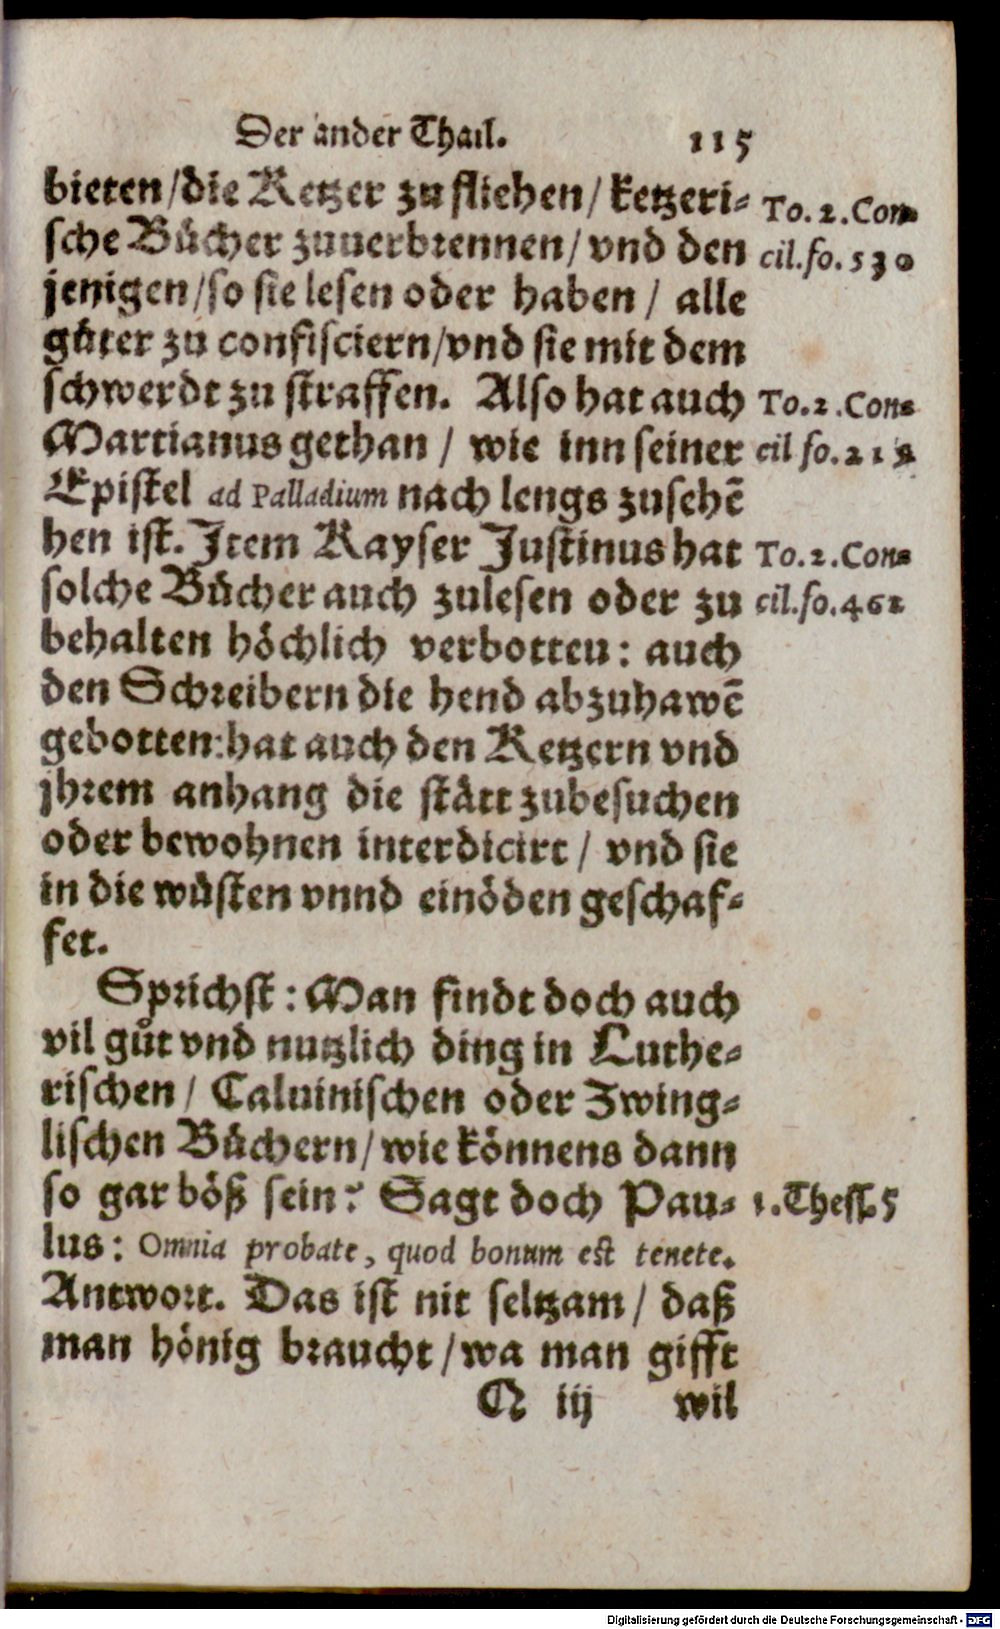 Der ander Thail. 115
bieten/die Ketzer zu fliehen/ ketzeri-
sche Bücher zuuerbrennen/ vnd den
jenigen/so sie lesen oder haben/ alle
güter zu confisciern/vnd sie mit dem
schwerdt zu straffen. Also hat auch
Martianus gethan/ wie inn seiner
Epistel ad Palladium nach lengs zusehē
hen ist. Item Kayser Justinus hat
solche Bücher auch zulesen oder zu
behalten höchlich verbotten: auch
den Schreibern die hend abzuhawē
gebotten: hat auch den Ketzern vnd
jhrem anhang die stätt zubesuchen
oder bewohnen interdicirt/ vnd sie
in die wüsten vnnd einöden geschaf-
fet.
Sprichst: Man findt doch auch
vil gůt vnd nutzlich ding in Luthe-
rischen/ Caluinischen oder Zwing-
lischen Büchern/wie könnens dann
so gar böß sein? Sagt doch Pau-
lus: Omnia probate, quod bonum est tenete.
Antwort. Das ist nit seltzam/ daß
man hönig braucht/wa man gifft
Q iij wil
To. 2. Con-
cil. fo. 530
To. 2. Con-
cil fo.
To. 2. Con-
cil. fo. 461
1. Thess. 5
Digitalisierung gefördert durch die Deutsche Forschungsgemeinschaft - DFG